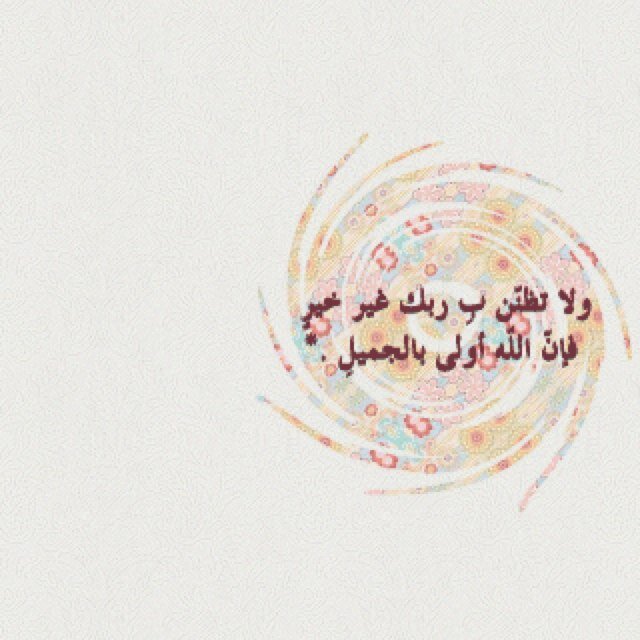 ولا تظنّن بِ ربك غير خيرٍ
فإنّ الله أولى بالجميلِ . *